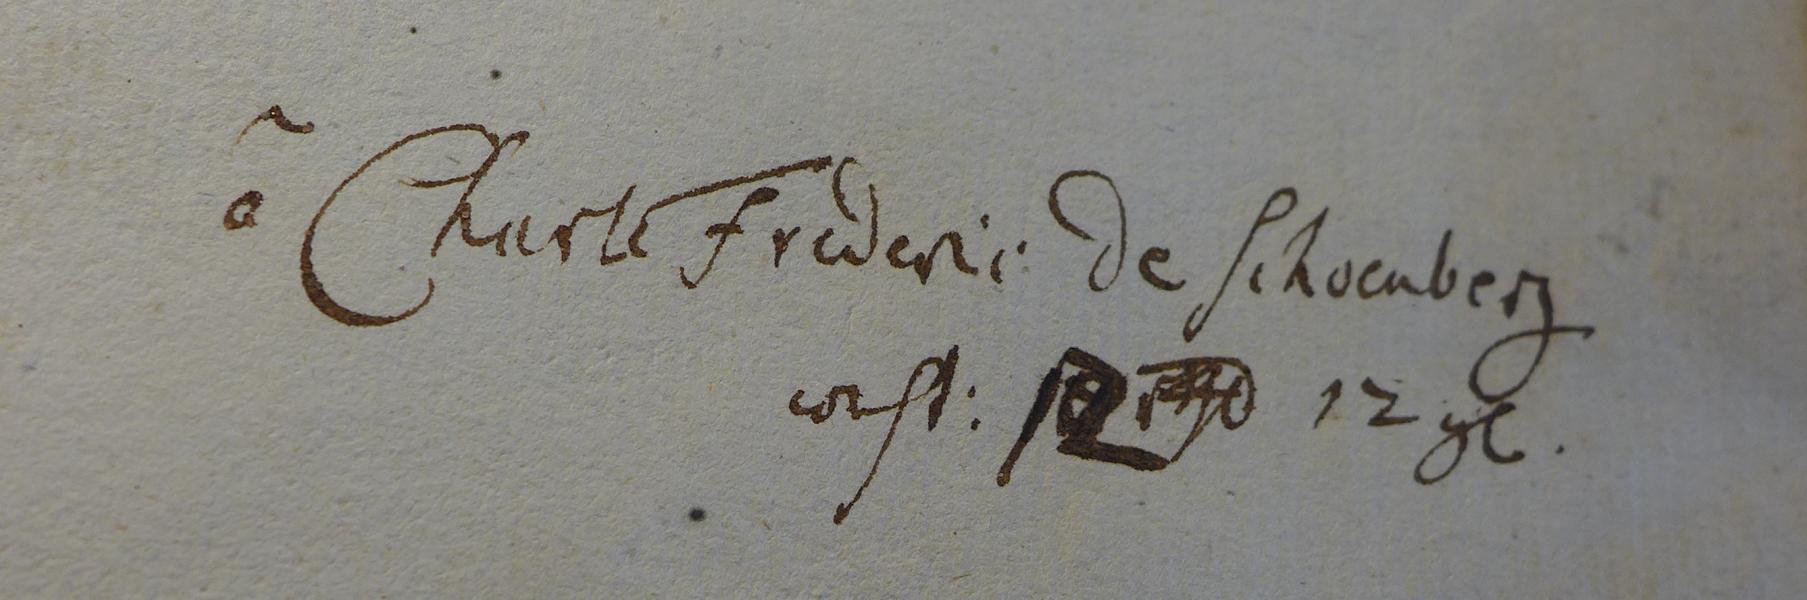 à Charle Frederic de Schoenberg
const: 12 gl.